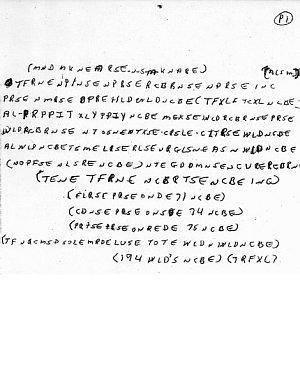 P1
(MND MKNEARSE-N-S-M-KNARE) (ALSM
TFRNE NPINSENPRSERCBRNSENPRSEINC
PRSENMRSE OPREHLDWLDNCBE (TFXLF TCXL NCBE
AL-PRPPIT XLYPPIY NCBE MGKSEWLDRCBRNSEPRSE
WLDRCBRNSE NTSSNENTXSE-CRSLE-CITRSEWLDNSDE
ALWLDNCBETSMELRSERLSEURGLSNEASNWLDNCBE
(NOPFSENLSRENCBE) NTEGDDMNSENCURERCBRNE
(TENE TFRNE NCBRTSENCBE ING)
(FIRSEPRSEONDE 71 NCBE)
(CDNSEPRSEONSDE 74 NCBE)
(PRTSEPRSEONREDE 75 NCBE)
(TFNRCMSDSOLEMRDELUSE TOTE WLDNWLDNCBE)
(194 WLD'S NCBE) (TRFXL)